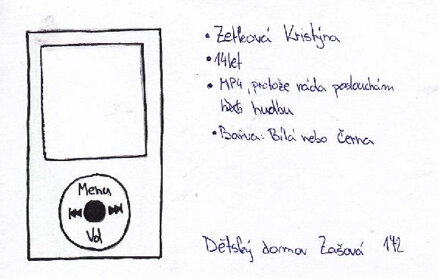 Zetková Kristýna
14let
MP4, protože ráda poslouchám
hudbu
Barva: Bílá nebo černa
Menu
Vol
Dětský domov Zašová 172